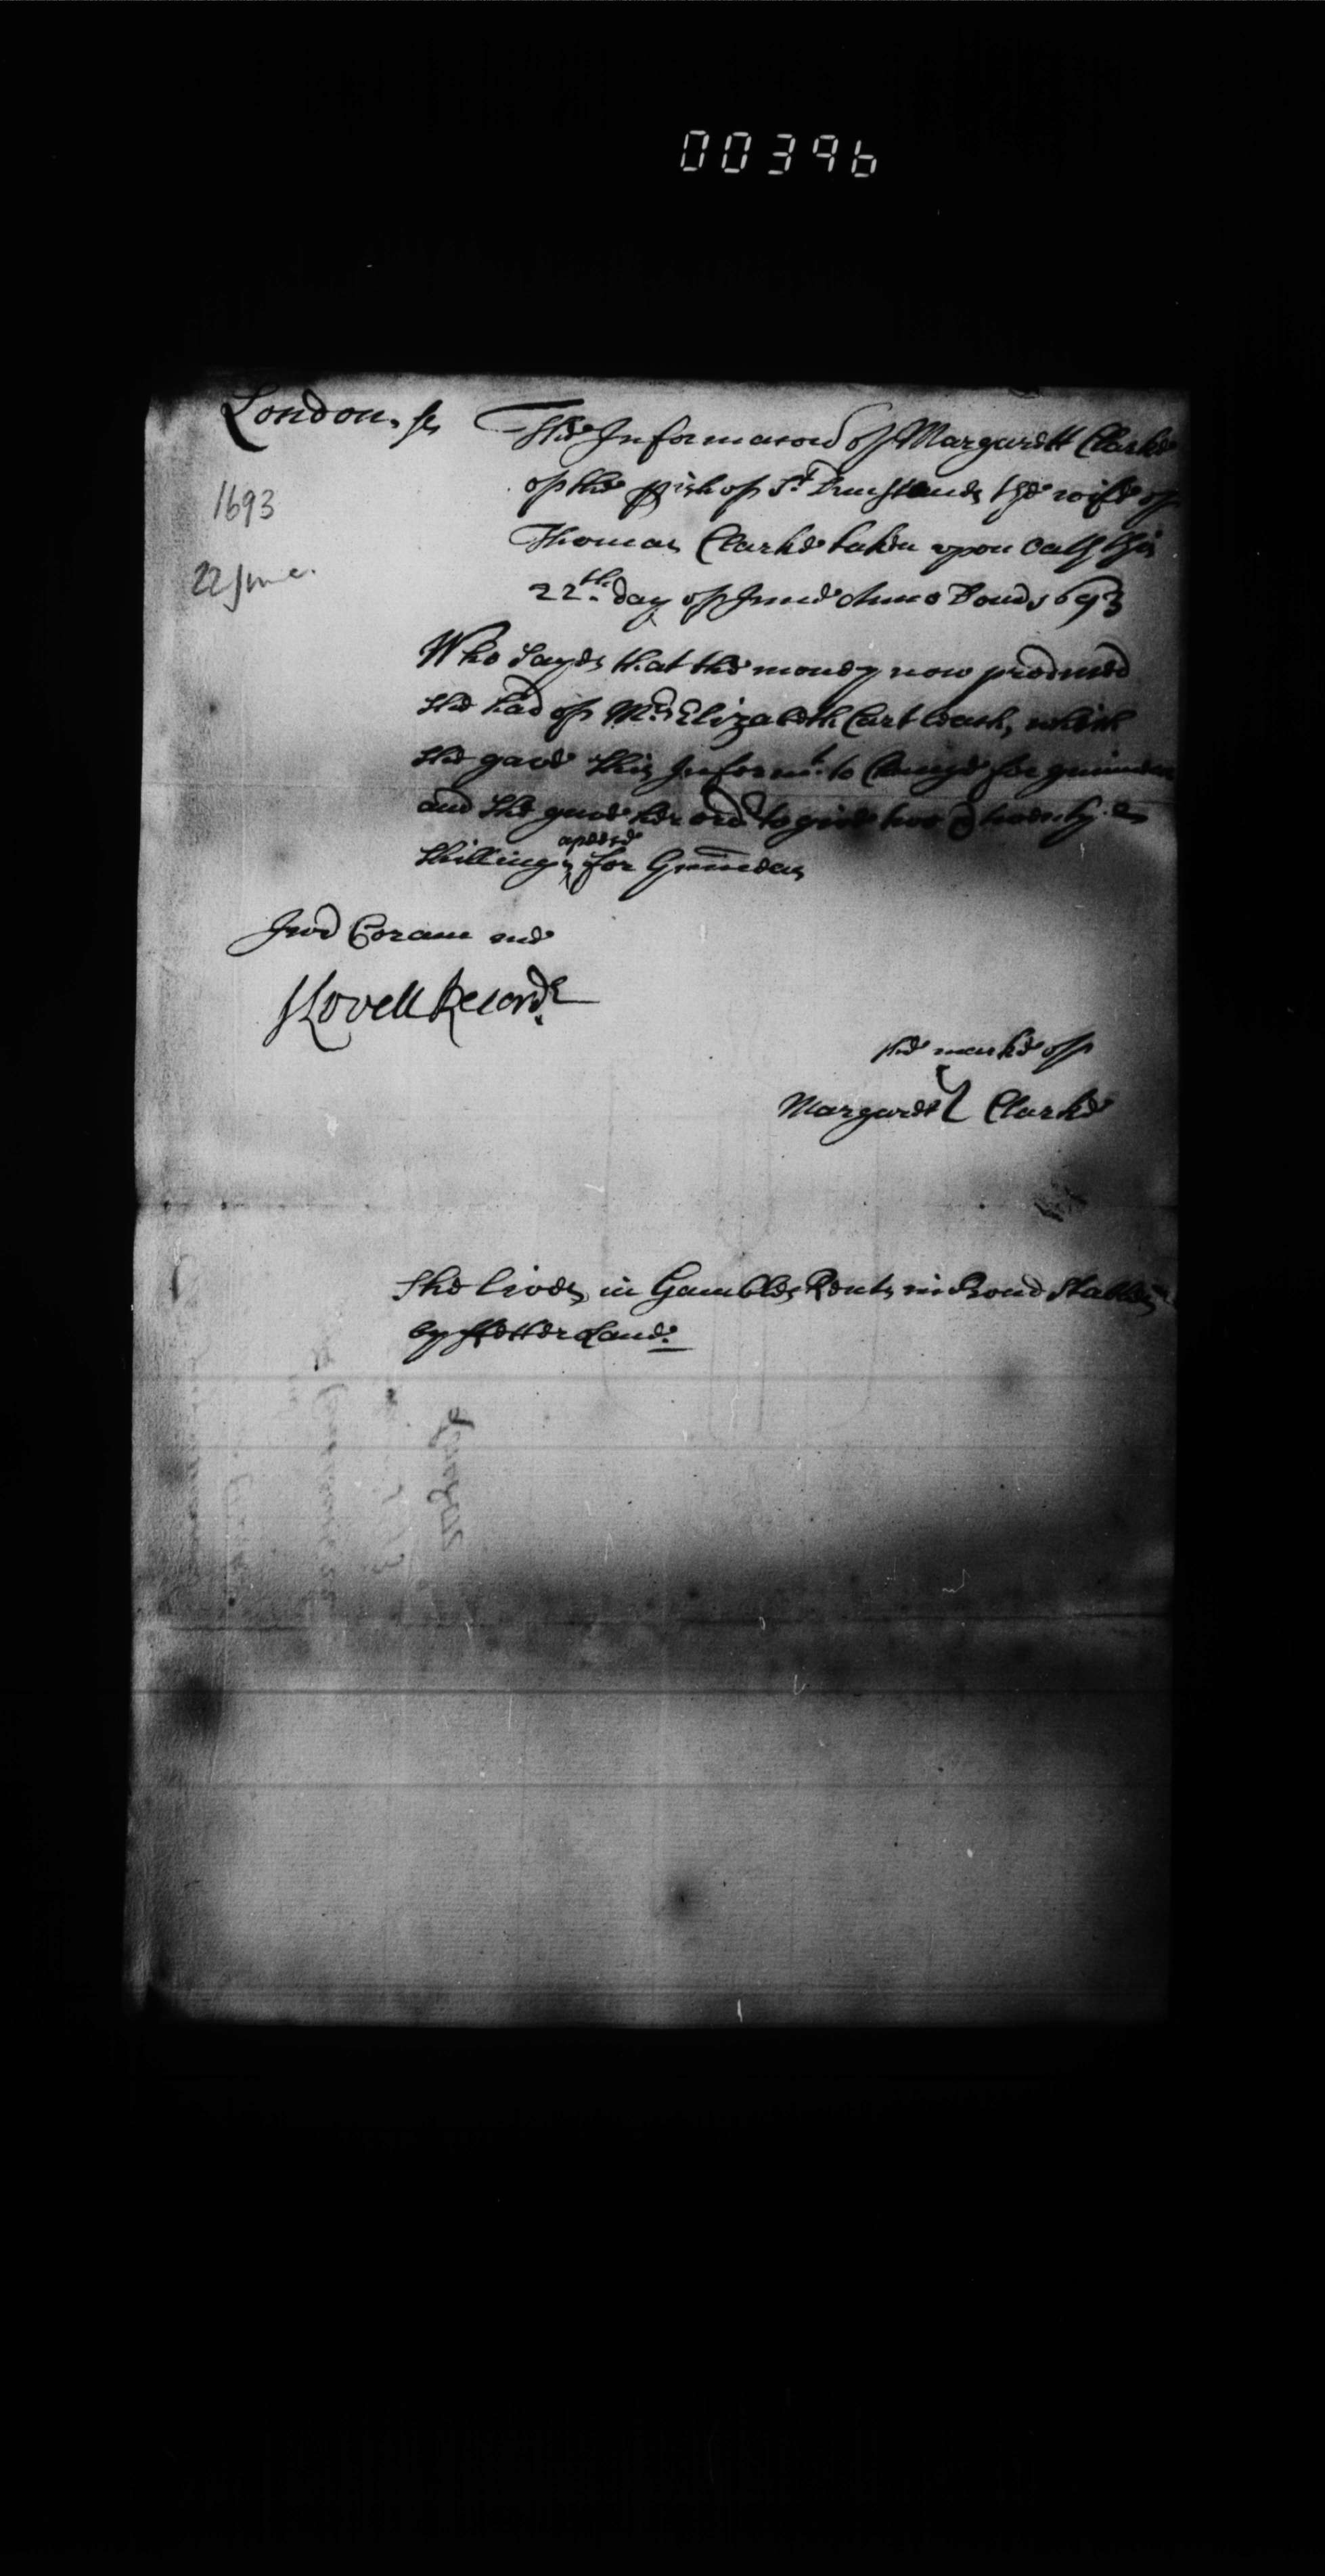 00396
London. ss
The Informacon of Margarett Clarke
1693
of the pish of St. Dunstands the wife of
Thomas Clarke taken upon oath this
22 June.
22th. day of June Anno Domi 1693
Who sayes that the money now produced
she had of Mrs Elizabeth Cartwath, which
she gave this Informt. to Change for guineas
and she gave her ordr to give two & twenty
shillings apeece for Guineas
Jur Coram me
S Lovell Recordr
the marke of
Margarett Clarke
She lives in Gambles Rents in Rond Stables
by ffetter Lane.